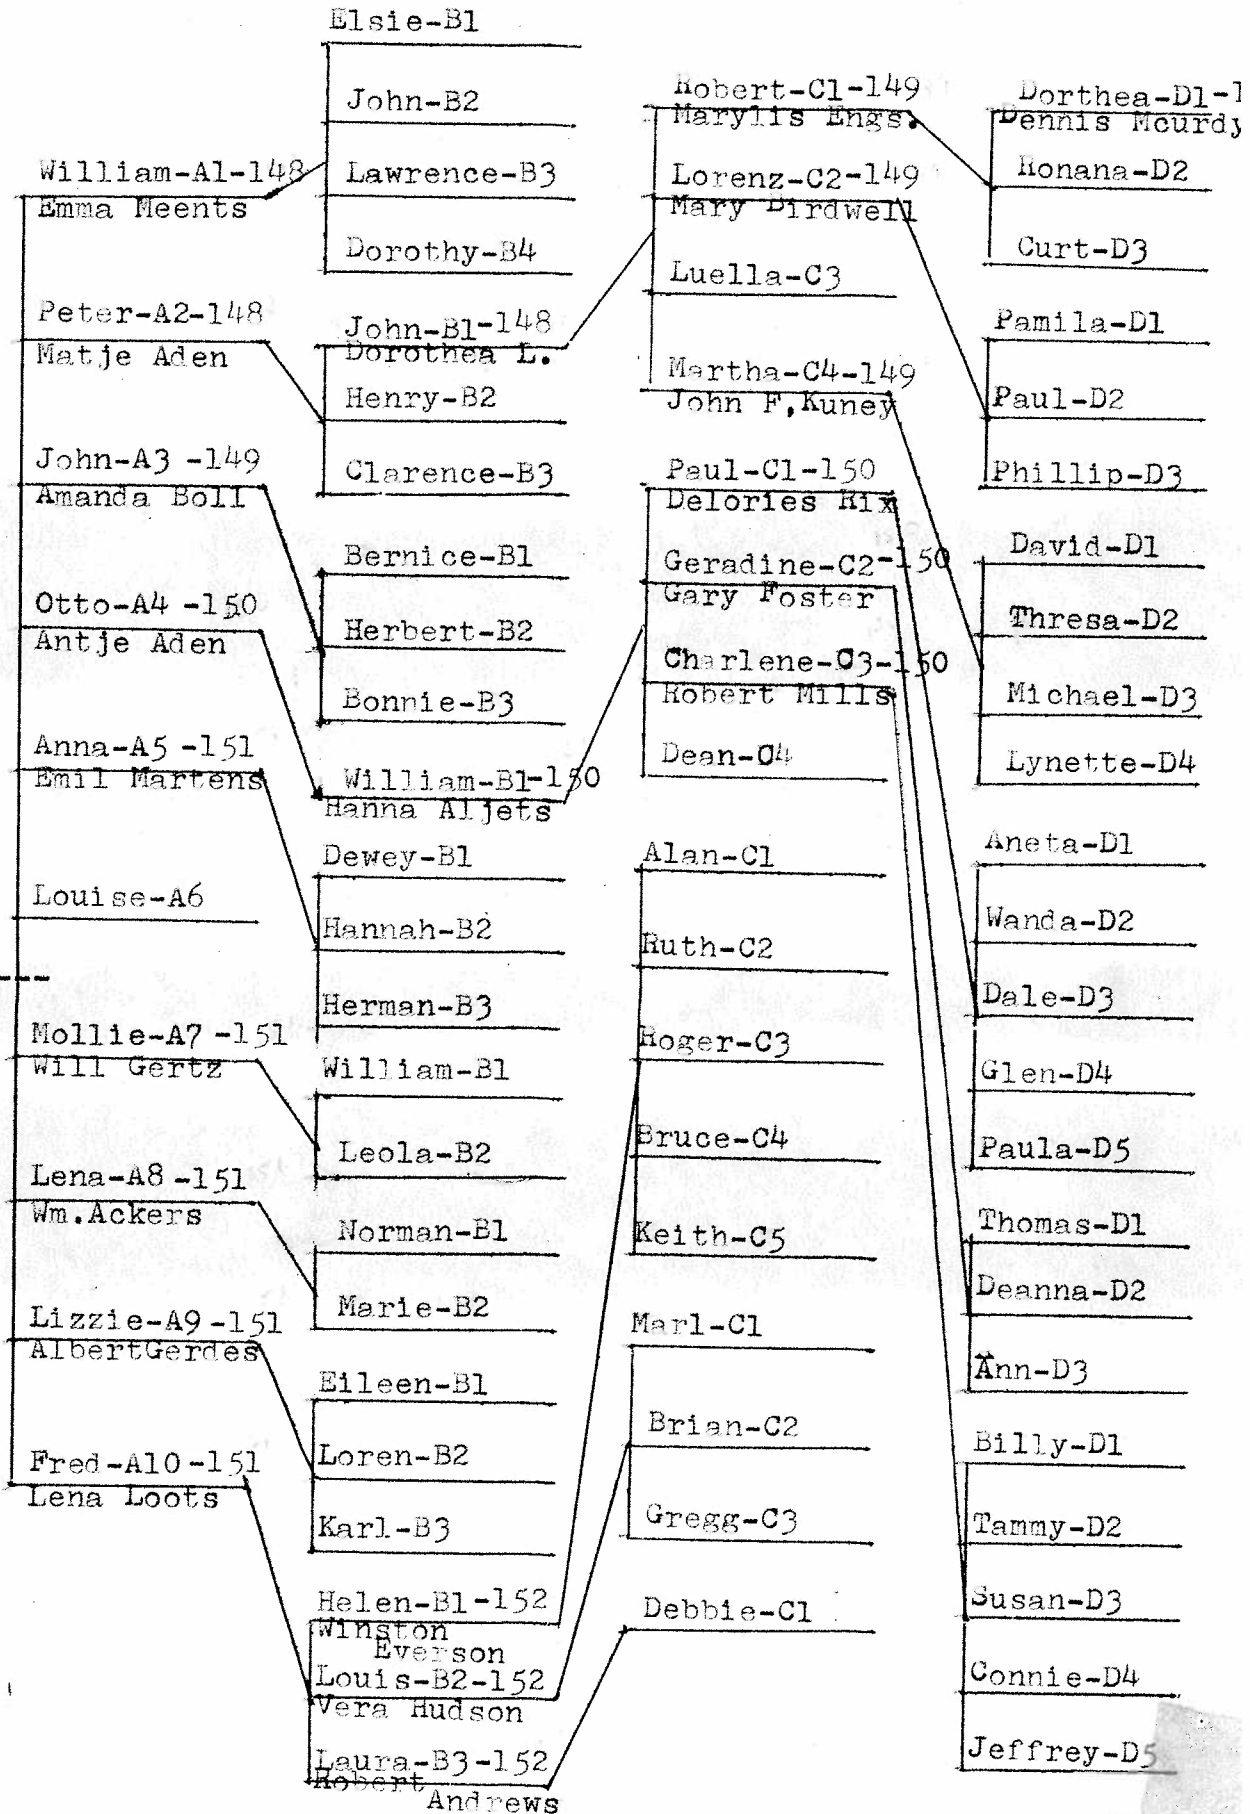 William-A1-148
Emma Meents
Peter-A2-148
Matje Aden
John-A3 -149
Amanda Boll
Otto-A4 -150
Antje Aden
Anna-A5 -151
Emil Martens
Louise-A6
Mollie-A7 -151
Will Gertz
Lena-A8 -151
Wm.Ackers
Lizzie-A9 -151
AlbertGerdes
Fred-A10 -151
Lena Loots
Elsie-B1
John-B2
Lawrence-B3
Dorothy-B4
John-B1-148
Dorothea L.
Henry-B2
Clarence-B3
Bernice-B1
Herbert-B2
Bonnie-B3
William-B1-150
Hanna Aljets
Dewey-B1
Hannah-B2
Herman-B3
William-B1
Leola-B2
Norman-B1
Marie-B2
Eileen-B1
Loren-B2
Karl-B3
Helen-B1-152
Winston
Everson
Louis-B2-152
Vera Hudson
Laura-B3-152
Robert
Andrews
Robert-C1-149
Marylis Engs.
Lorenz-C2-149
Mary Birdwell
Luella-C3
Martha-C4-149
John F,Kuney
Paul-C1-150
Delories Rix
Geradine-C2-150
Gary Foster
Charlene-C3-150
Robert Mills
Dean-C4
Alan-C1
Ruth-C2
Roger-C3
Bruce-C4
Keith-C5
Marl-C1
Brian-C2
Gregg-C3
Debbie-C1
Dorthea-D1-1
Dennis Mcurdy
Ronana-D2
Curt-D3
Pamila-D1
Paul-D2
Phillip-D3
David-D1
Thresa-D2
Michael-D3
Lynette-D4
Aneta-D1
Wanda-D2
Dale-D3
Glen-D4
Paula-D5
Thomas-D1
Deanna-D2
Ann-D3
Billy-D1
Tammy-D2
Susan-D3
Connie-D4
Jeffrey-D5